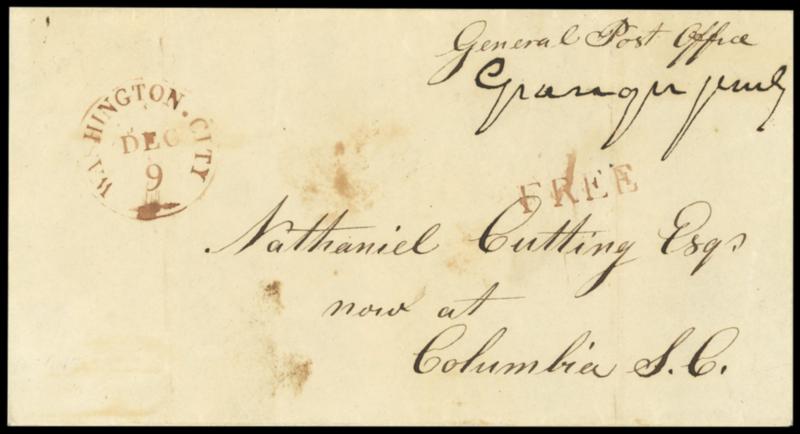 General Post Office
WASHINGTON. CITY
DEC
9
FREE
Nathaniel Cutting Esqr
now at
Columbia S.C.